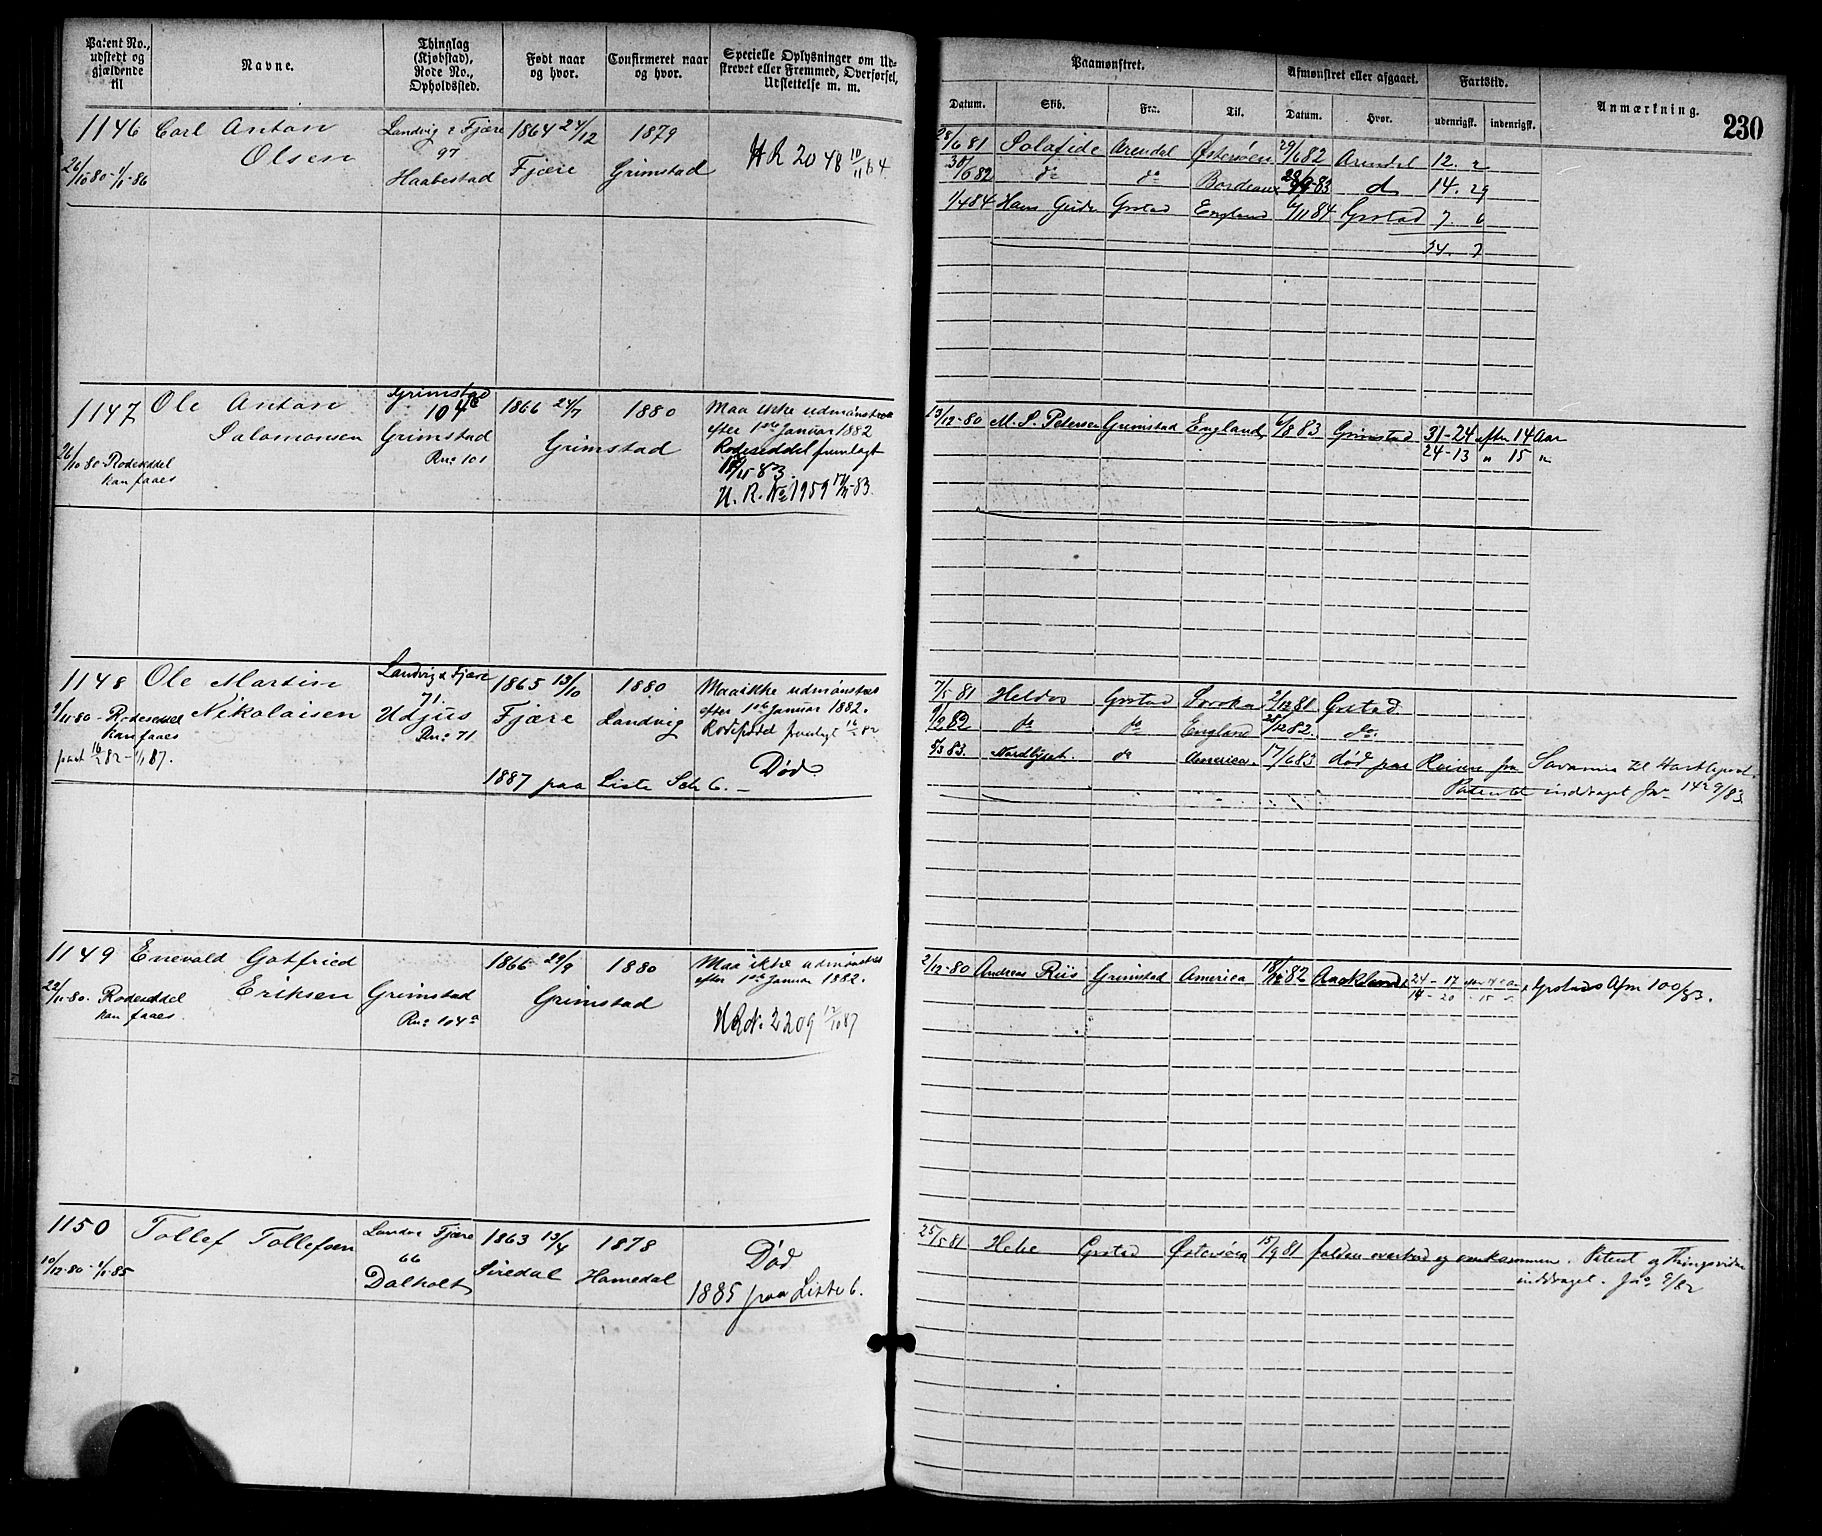 Patent No., udstedt og gjældende til
Navne.
Thinglag (Kjøbstad), Rode No., Opholdssted.
Født naar og hvor.
Confirmeret naar og hvor.
Specielle Oplysninger om Udskrevet eller Fremmed, Overførsel, Udslettelse m. m.
Paamønstret.
Afmønstret eller afgaaet.
Fartstid.
Anmærkning.
230
Datum.
Skib.
Fra.
Til.
Datum.
Hvor.
udenrigsk.
indenrigsk.
1146 Carl Anton Olsen
26/10 80 - 1/1-86
Landvig & Fjære
97
Haabestad
1864 24/12
Fjære
1879
Grimstad
HR 2048 10/11 84
28/6 81 Solafide Arendal Østersøen 29/6 82 Arendal 12. 2
30/6 82 do do Bordeaux 28/9-83 d 14. 29
1/4 84 Grstad England 6/11 84 Grstad 7. 6
34. 7
1147 Ole Anton Salomonsen
26/10 80 Rodeseddel
kan faaes
Grimstad
104
Grimstad
Rno 101
1866 24/7
1880
Grimstad
Maa ikke udmønstres
efter 1ste Januar 1882
Rodeseddel fremlagt
H. R. No 1959 -83.
13/12-80 M. S. Petersen Grimstad England 6/8 83 Grimstad 31-24 efter 14 Aar
24-13 " 15 "
1148 Ole Martin Nikolaisen
9/11-80 - Rodeseddel
kan faaes
pat 16/2 82 - 1/1 87.
Landvig & Fjære
71.
Udjus
Rno 71
1865 13/10
Fjære
1880
Landvig
Maa ikke udmønstres
efter 1ste Januar 1882.
fremlagt 16/2 82
Død
1887 paa Liste Sch 6. -
7/5 81 Heldos Grstad Soroka 2/12 81 Grstad
9/2 82 do do England 28/12 82. do.
5/3 83. Nordlyset. do America. 17/6 83 død paa Reisen fra Savanna til Hartlepool.
Patent inddraget Jno 1429/83
1149 Enevold Gotfried Eriksen
22/11-80. Rodeseddel
kan faaes.
Grimstad
Rno 104a
1866 29/9
1880
Grimstad
Maa ikke udmønstres
efter 1ste Januar 1882.
HRN. 2209 12/10 87
2/12-80 Andreas Riis Grimstad America 82 24 - 17
14 - 20 - 15
Grstads Afm 100/83.
1150 Tollef Tollefsen
10/12-80 - 1/1-85
Landv & Fjære
66
Dalholt
1863 13/4
Siredal
1878
Homedal
Død
1885 paa Liste 6.
25/5 81 Hebe Grstad Østersøen 15/9 81 falden overbord og omkommen. Patent og
inddraget. Jno 9/82